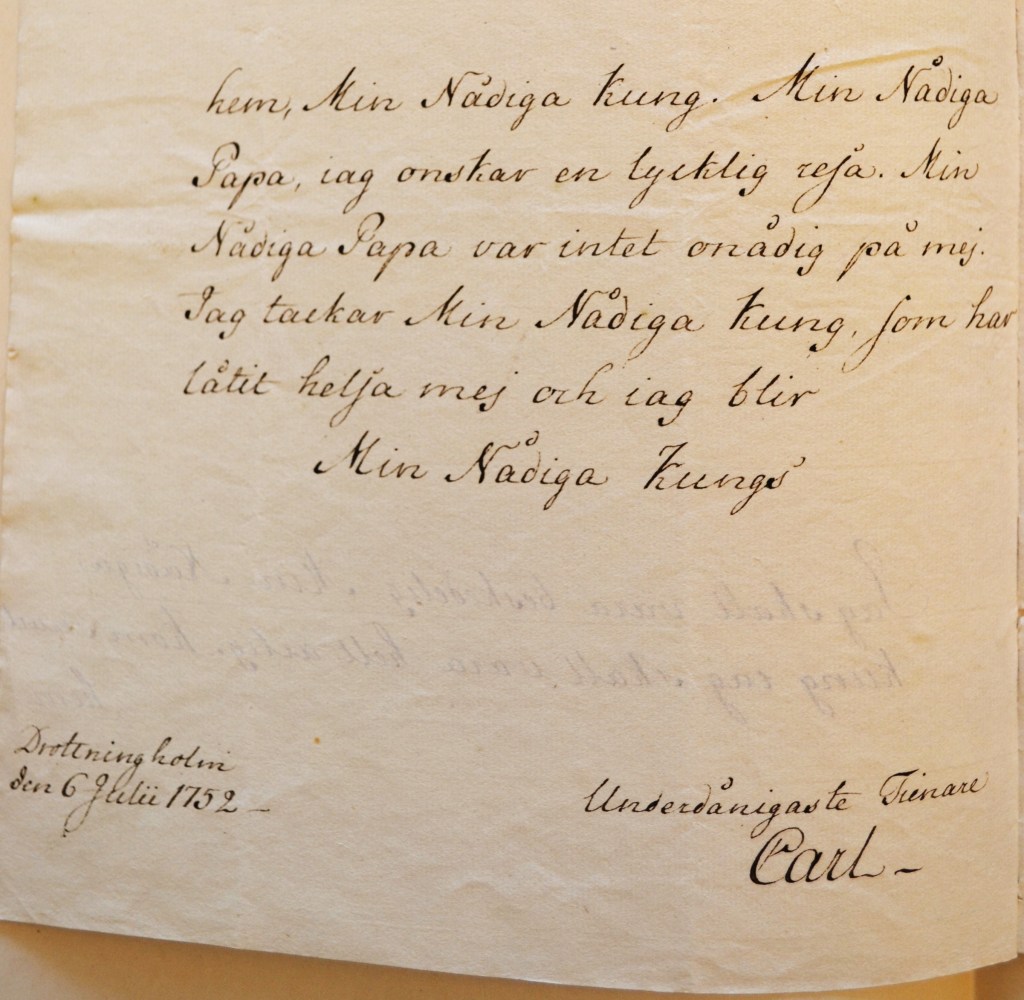 hem, Min Nådiga Kung. Min Nådiga
Papa, iag onskar en lycklig resa. Min
Nådiga Papa var intet onådig på mej.
Jag tackar Min Nådiga Kung, som har
låtit helsa mej och iag blir
Min Nådiga Kungs
Drottningholm
den 6 Julii 1752
Underdånigaste Tienare
Carl